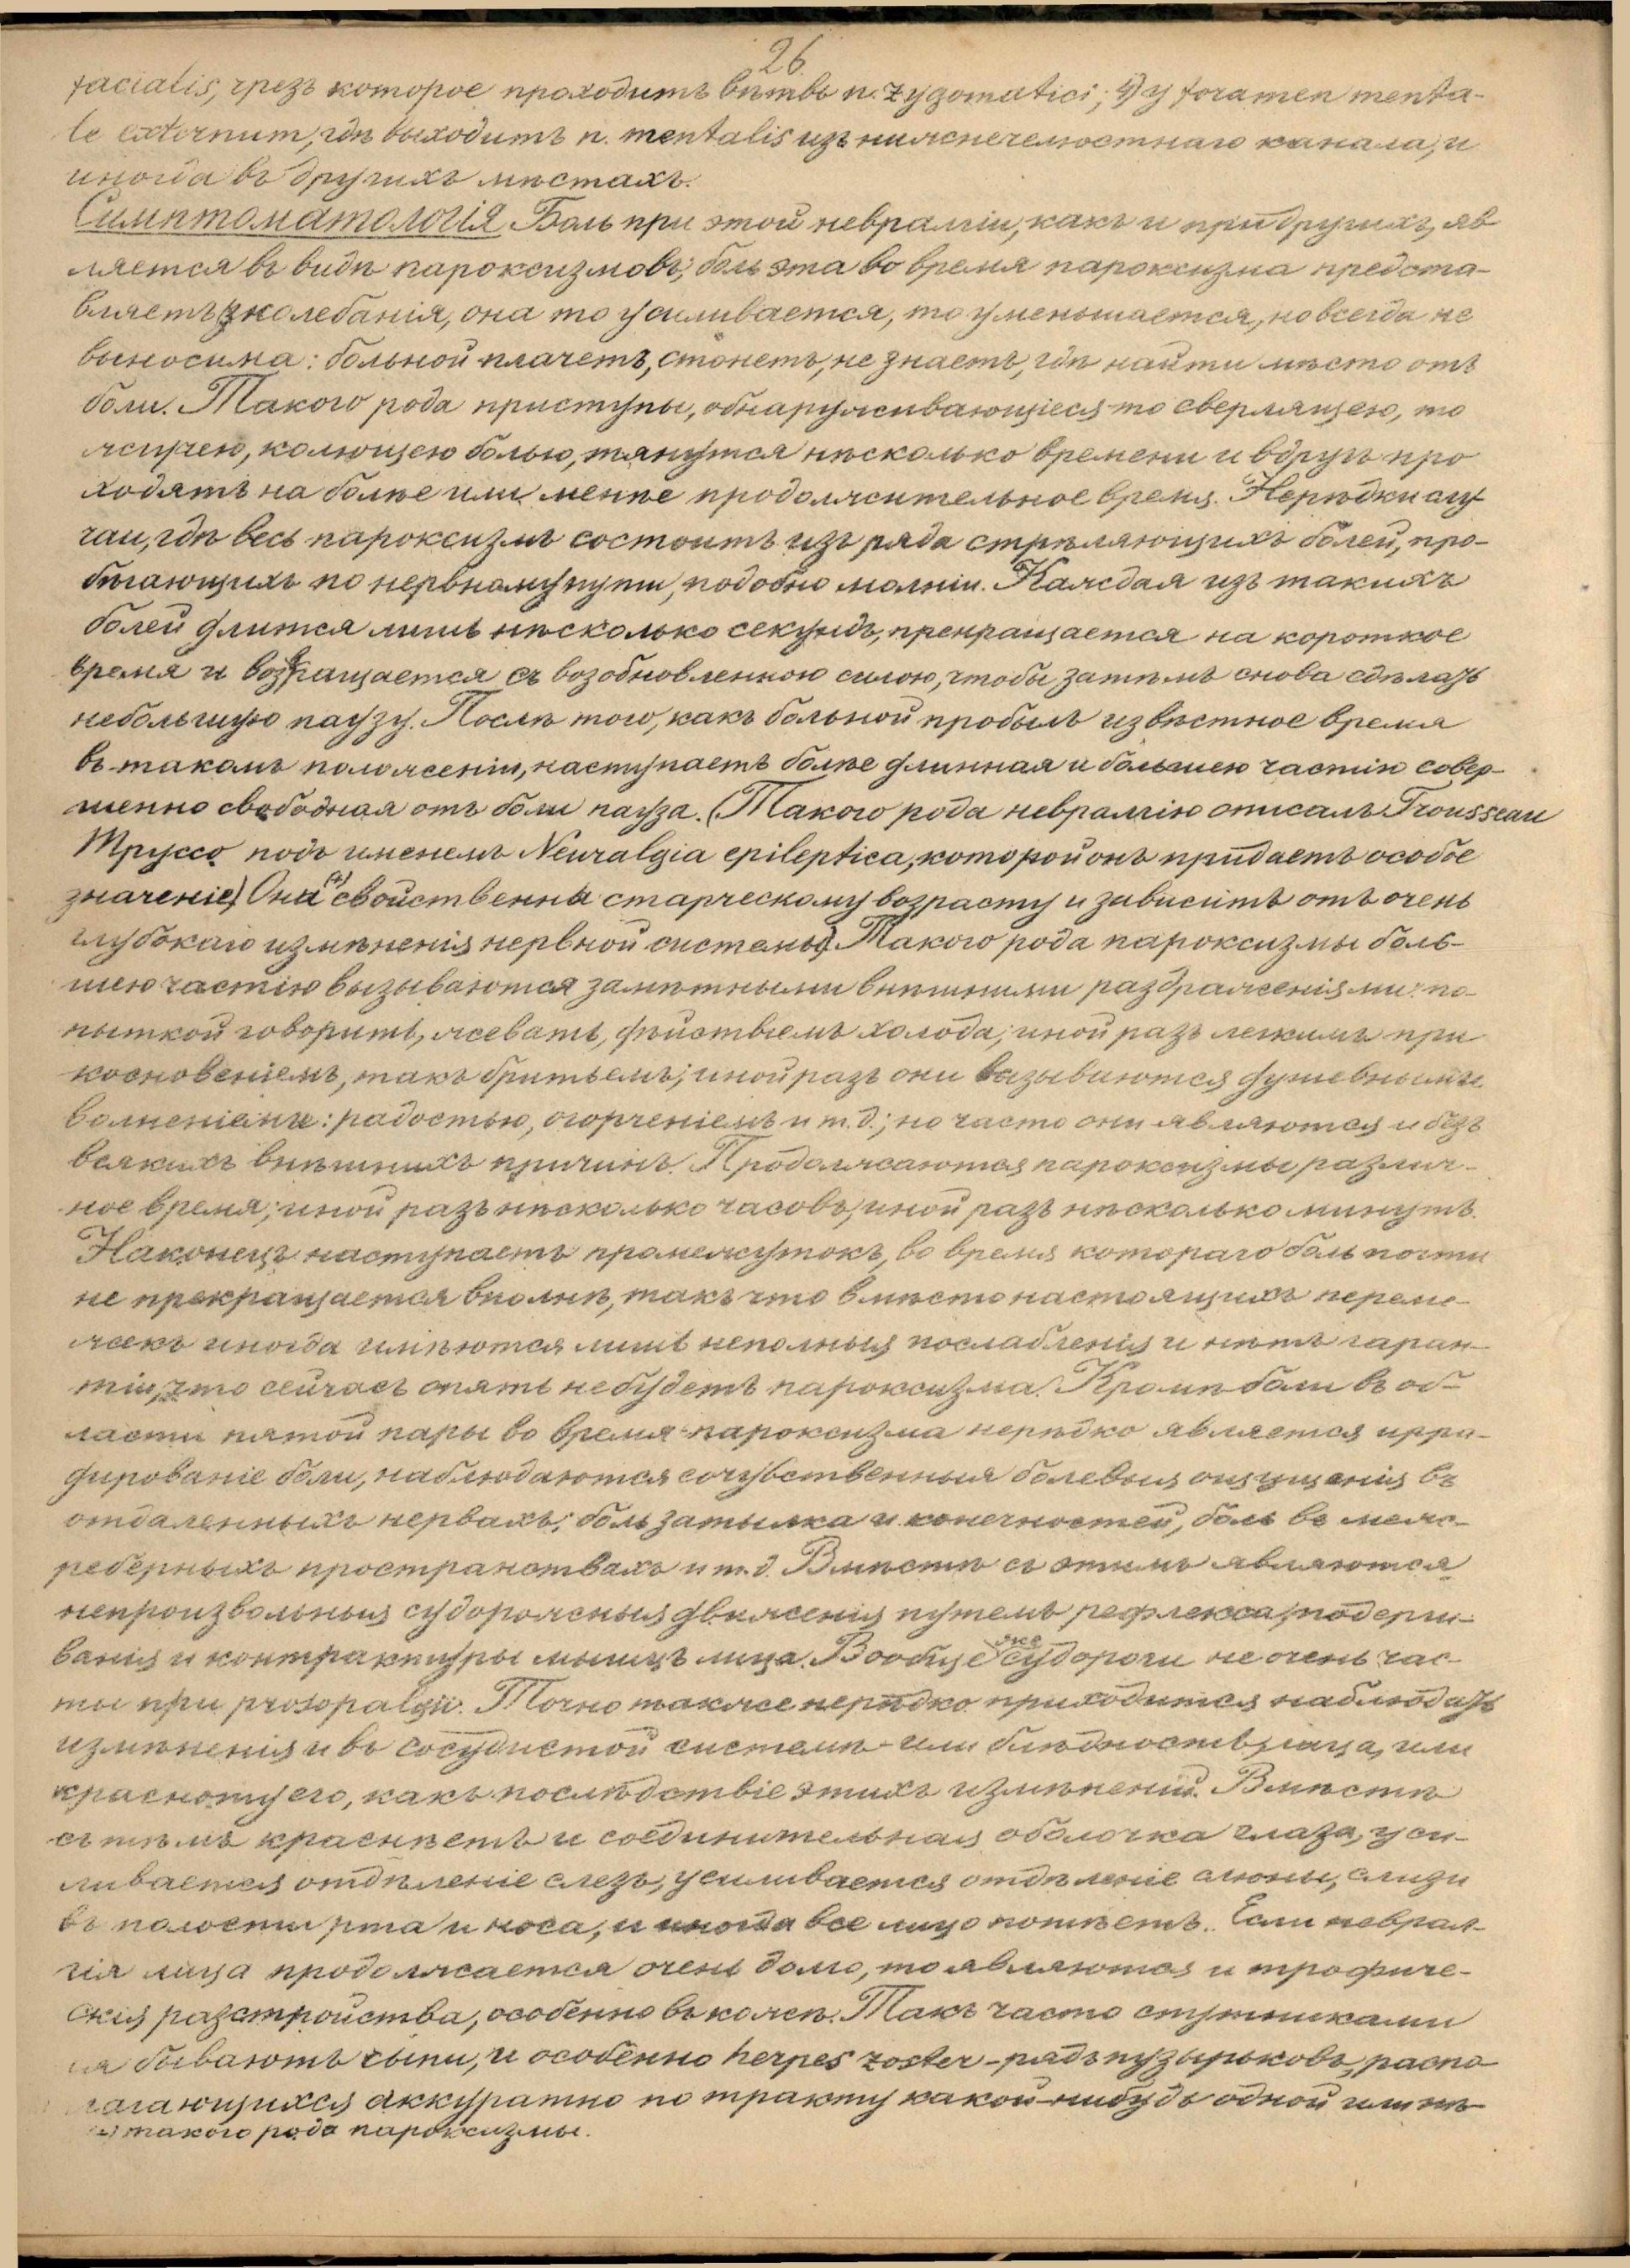 26.
facialis, чрезъ которое проходитъ вѣтвь n. zygomatici; 4) у foramen menta-
le externum, гдѣ выходитъ n. mentalis изъ нижнечелюстнаго канала, и
иногда въ другихъ мѣстахъ.
Симптоматологія. Боль при этой невралгіи, какъ и при другихъ, яв
ляется въ видѣ пароксизмовъ; боль эта во время пароксизма предста-
вляетъ колебанія, она то усиливается, то уменьшается, но всегда не
выносима: больной плачетъ, стонетъ, не знаетъ, гдѣ найти мѣсто отъ
боли. Такого рода приступы, обнаруживающіеся то сверлящею, то
жгучею, колющею болью, тянутся нѣсколько времени и вдругъ про
ходятъ на болѣе или менѣе продолжительное время. Нерѣдки слу
чаи, гдѣ весь пароксизмъ состоитъ изъ ряда стрѣляющихъ болей, про-
бѣгающихъ по нервному пути, подобно молніи. Каждая изъ такихъ
болей длится лишь нѣсколько секундъ, прекращается на короткое
время и возвращается съ возобновленною силою, чтобы затѣмъ снова сдѣлать
небольшую паузу. Послѣ того, какъ больной пробылъ извѣстное время
въ такомъ положеніи, наступаетъ болѣе длинная и большею частію совер-
шенно свободная отъ боли пауза. (Такого рода невралгію описалъ Trousseau
Труссо подъ именемъ Neuralgia epileptica, которой онъ придаетъ особое
значеніе) Она (*) свойственна старческому возрасту и зависитъ отъ очень
глубокаго измѣненія нервной системы). Такого рода пароксизмы боль-
шею частію вызываются замѣтными внѣшними раздраженіями: по-
пыткой говорить, жевать, дѣйствіемъ холода; иной разъ легкимъ при
косновеніемъ, такъ бритьемъ; иной разъ они вызываются душевными
волненіями: радостью, огорченіемъ и т.д.; но часто они являются и безъ
всякихъ внѣшнихъ причинъ. Продолжаются пароксизмы различ-
ное время; иной разъ нѣсколько часовъ, иной разъ нѣсколько минутъ.
Наконецъ наступаетъ промежутокъ, во время котораго боль почти
не прекращается вполнѣ, такъ что вмѣсто настоящихъ переме-
жекъ иногда имѣются лишь неполныя послабленія и нѣтъ гаран-
тіи, что сейчасъ опять не будетъ пароксизма. Кромѣ боли въ об-
ласти пятой пары во время пароксизма нерѣдко является ирра-
дированіе боли, наблюдаются сочувственныя болевыя ощущенія въ
отдаленныхъ нервахъ; боль затылка и конечностей, боль въ меж-
реберныхъ пространствахъ и т.д. Вмѣстѣ съ этимъ являются
непроизвольныя судорожныя движенія путемъ рефлекса, подерги-
ванія и контрактуры мышцъ лица. Вообще же судороги не очень час-
ты при prosopalgii. Точно такъ же нерѣдко приходится наблюдать
измѣненія и въ сосудистой системѣ - или блѣдность лица, или
красноту его, какъ послѣдствіе этихъ измѣненій. Вмѣстѣ
съ тѣмъ краснѣетъ и соединительная оболочка глаза, уси-
ливается отдѣленіе слезъ, усиливается отдѣленіе слюны, слизи
въ полости рта и носа, и иногда все лицо потѣетъ. Если неврал-
гія лица продолжается очень долго, то являются и трофиче-
скія разстройства, особенно въ кожѣ. Такъ часто спутниками
ея бываютъ сыпи, и особенно herpes zoster - рядъ пузырьковъ, распо
лагающихся аккуратно по тракту какой-нибудь одной или нѣ-
(*) такого рода пароксизмы.